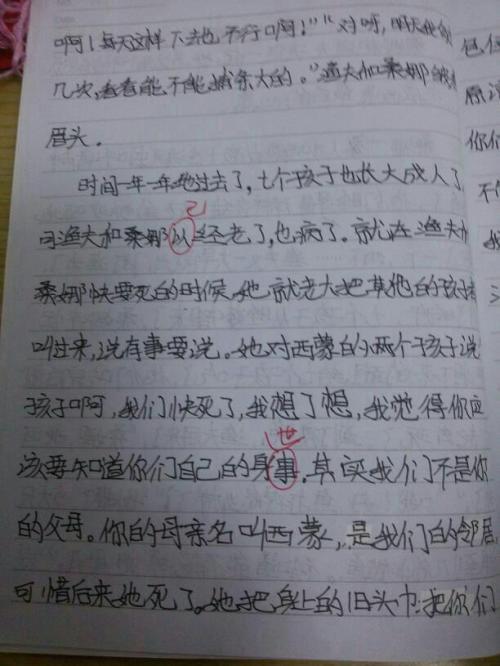 啊！每天这样下去也不行啊！”“对呀，明天我们
几次，看看能不能捕条大的。”渔夫和桑娜皱
眉头。
时间一年一年地过去了，七个孩子也长大成人了
己
可渔夫和桑娜以经老了，也病了。就在渔夫和
桑娜快要死的时候，她就老大把其他的孩
叫过来，说有事要说。她对西蒙的两个孩子说
孩子啊，我们快死了，我想了想，我觉得你应
世
该要知道你们自己的身事，其实我们不是你
的父母。你的母亲名叫西蒙，是我们的邻居，
可惜后来她死了。她把身上的旧头巾把你们
包
原
你们
不